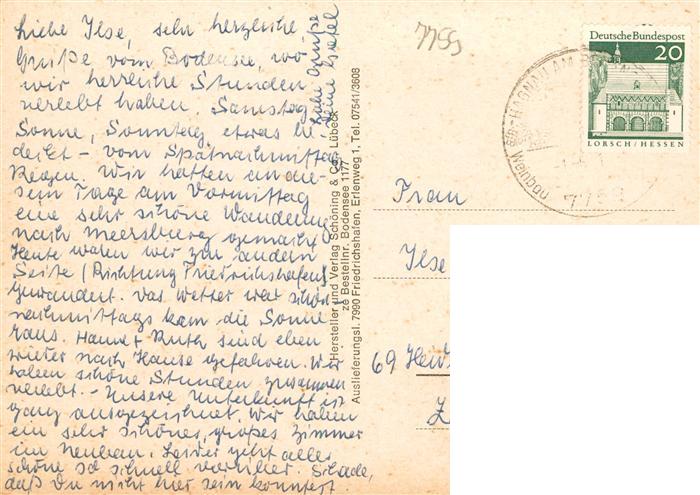 Liebe Ilse, sehr herzliche
Grüße vom Bodensee, wo
wir herrliche Stunden
verlebt haben. Samstag
Sonne, Sonntag etwas be-
deckt - vom Spätnachmittag
Regen. Wir hatten an die-
sem Tage am Vormittag
eine sehr schöne Wanderung
nach Meersburg gemacht.
Heute waren wir zur andern
Seite (Richtung Friedrichshafen)
gewandert. Das Wetter war schön
nachmittags kam die Sonne
raus. Hanne + Ruth sind eben
wieder nach Hause gefahren. Wir
haben schöne Stunden zusammen
verlebt. - Unsere Unterkunft ist
ganz ausgezeichnet. Wir haben
ein sehr schönes, großes Zimmer
im Neubau. Leider geht alles
schöne so schnell vorüber. Schade,
daß Du nicht hier sein konntest.
Liebe Grüße
Deine
Hersteller und Verlag Schöning & Co., Lübeck
ze Bestellnr. Bodensee 1177
Auslieferungsl. 7990 Friedrichshafen, Erlenweg 1, Tel. 07541/3608
7755
Deutsche Bundespost
20
LORSCH/HESSEN
HAGNAU AM
Frau
Ilse
69